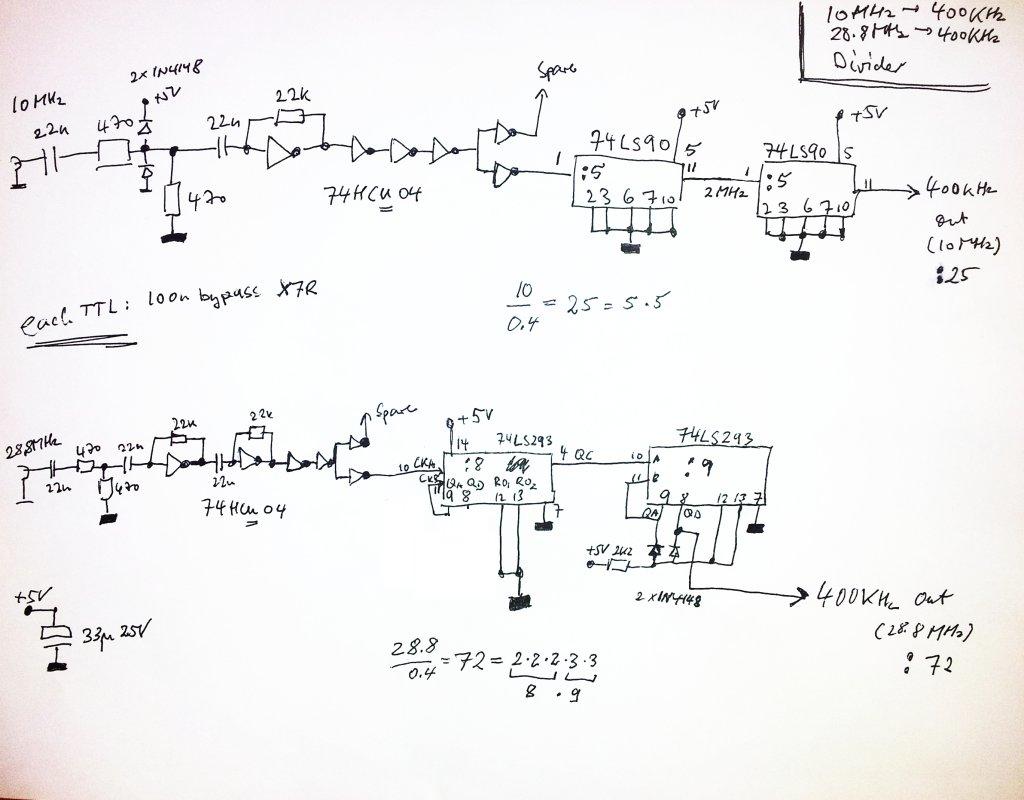 10MHz → 400KHz
28.8MHz → 400KHz
Divider
2x1N4148
+5V
10MHz
22n
470
22n
22K
Spare
470
74HCU04
1
74LS90
+5V
5
:5
11
2 3 6 7 10
2MHz
1
74LS90
+5V
5
:5
11
2 3 6 7 10
400KHz
out
(10MHz)
:25
each TTL: 100n bypass X7R
10
0.4
= 25 = 5.5
28.8MHz
22n
470
470
22n
22K
22n
22K
74HCU04
Spare
+5V
14
74LS293
10 CKA
CKB
11
:8
QA QD RO1 RO2
9 8 12 13
7
4 QC
74LS293
10 A
11 B
:9
9 8 12 13 7
QA QD
+5V 2K2
2x1N4148
400KHz out
(28.8MHz)
:72
+5V
33µ 25V
28.8
0.4
= 72 = 2.2.2.3.3
8 . 9